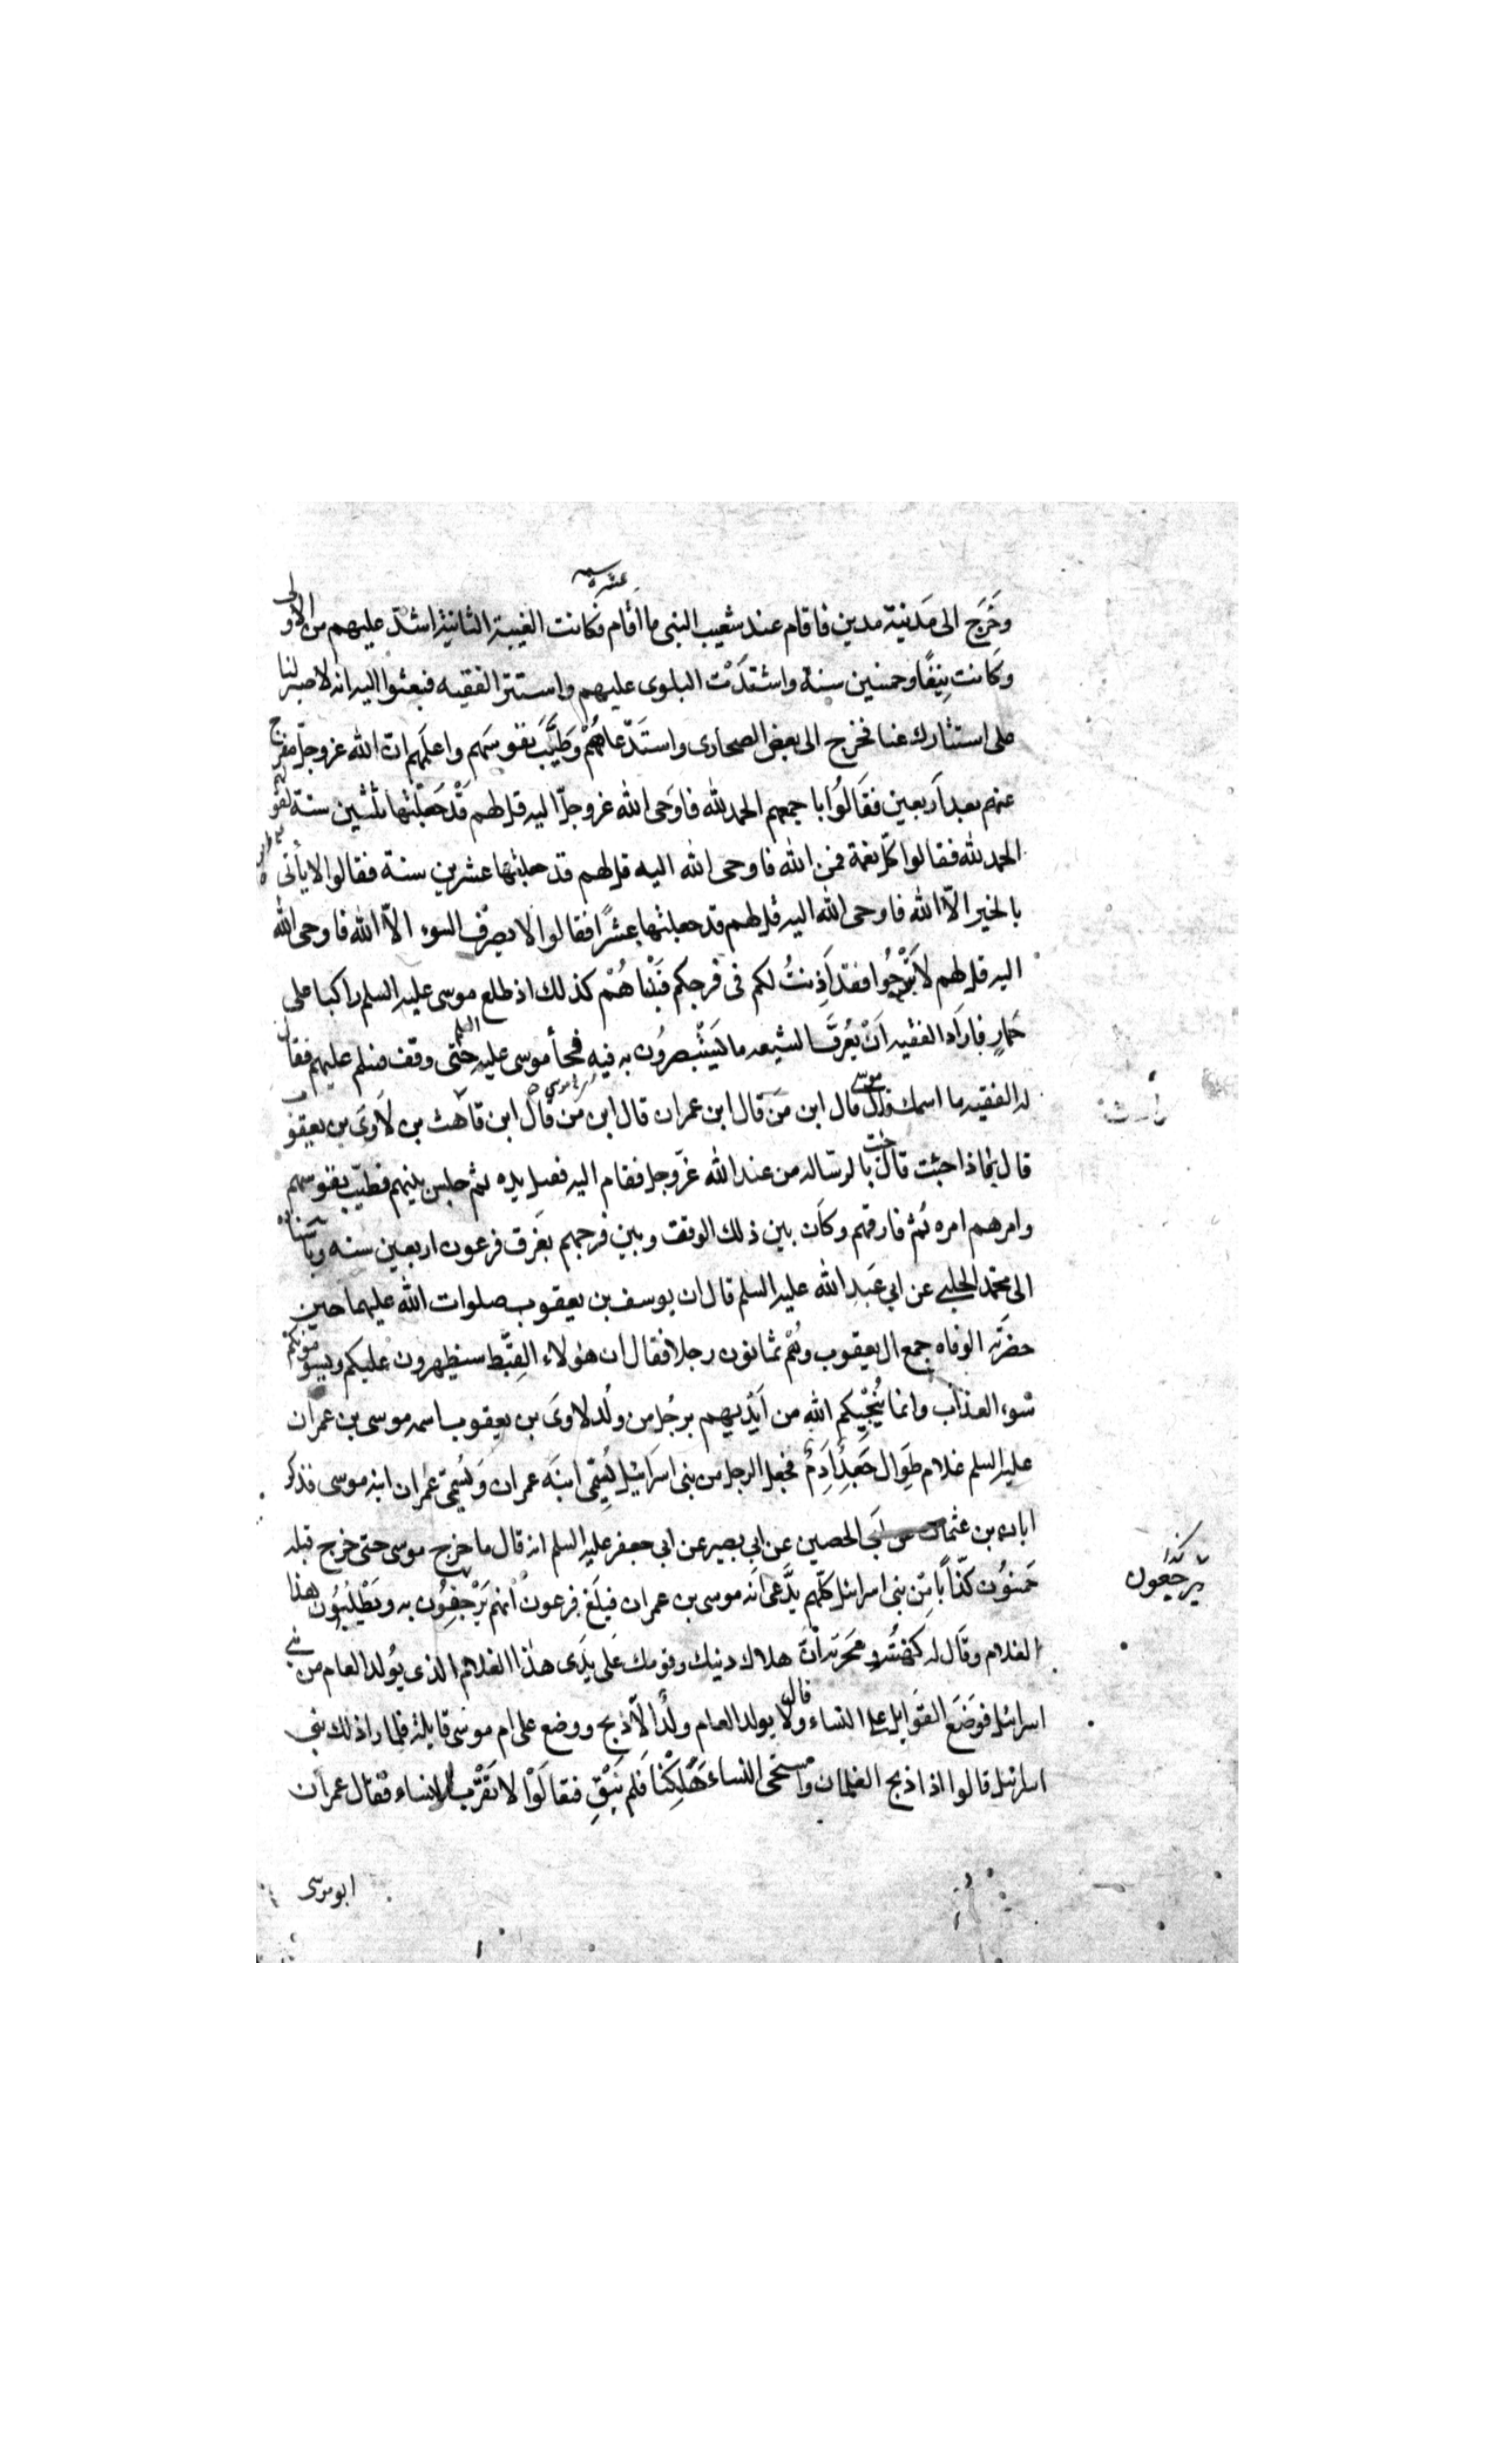 عشره سنة
وخرج الى مدنية مدين فاقام عند شعيب النبى ما اقام فكانت الغيبة الثانية اشد عليهم من الاولى
وكانت نيفا وخمسين سنة واشتدت البلوى عليهم واستتر الفقيه فبعثوا اليه انه لا صبر لنا
على استتارك عنا فخرج الى بعض الصحارى واستدعاهم وطيب نفوسهم واعلمهم ان الله عز وجل مفرج
عنهم بعد اربعين فقالوا باجمعهم الحمد لله فاوحى الله عز وجل اليه قل لهم قد جعلتها ثلثين سنة لقولهم
الحمد لله فقالوا كل نعمة فمن الله فاوحى الله اليه قل لهم قد جعلتها عشرين سنة فقالوا لا يأتى
بالخير الا الله فاوحى الله اليه قل لهم قد جعلتها عشرا فقالوا لا يصرف السوء الا الله فاوحى الله
اليه قل لهم لا تبرحوا فقد اذنت لكم فى فرجكم فبيناهم كذلك اذ طلع موسى عليه السلم راكبا على
حمار فاراد الفقيه ان يعرف الشيعه ما يستبصرون به فيه فجأ موسى عليه السلم حتى وقف فسلم عليهم فقال
له الفقيه ما اسمك قال موسى قال ابن من قال ابن عمران قال ابن من قال ابن قاهث بن لاوى بن يعقوب
قال بماذا جئت قال جئت بالرساله من عند الله عز وجل فقام اليه فقبل يده ثم جلس بينهم فطيب نفوسهم
وامرهم امره ثم فارقهم وكان بين ذلك الوقت وبين فرجهم بغرق فرعون اربعين سنه وباسناده
الى محمد الحلبى عن ابى عبد الله عليه السلم قال ان يوسف بن يعقوب صلوات الله عليهما حين
حضرته الوفاه جمع ال يعقوب وهم ثمانون رجلا فقال ان هؤلاء القبط سيظهرون عليكم ويسومونكم
سوء العذاب وانما ينجيكم الله من ايديهم برجل من ولد لاوى بن يعقوب اسمه موسى بن عمران
عليه السلم غلام طوال جعد ادم فجعل الرجل من بنى اسرائيل يسمى ابنه عمران ويسمى عمران ابنه موسى فذكر
ابان بن عثمان عن ابى الحصين عن ابى بصير عن ابى جعفر عليه السلم انه قال ما خرج موسى حتى خرج قبله
خمسون كذابا من بنى اسرائيل كلهم يدعى انه موسى بن عمران فبلغ فرعون انهم يرجفون به ويطلبون هذا
يرجعون
الغلام وقال له كهنته وسحرته ان هلاك دينك وقومك على يدى هذا الغلام الذى يولد العام من بنى
اسرائيل فوضع القوابل على النساء وقال لا يولد العام ولد الا ذبح ووضع على ام موسى قابلة فلما راى ذلك بنى
اسرائيل قالوا اذا ذبح الغلمان واستحى النساء هلكنا فلم نبق فقالوا لا نقرب النساء فقال عمران
ابو موسى